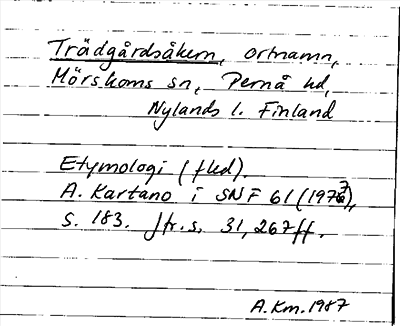 Trädgårdsåkern, ortnamn,
Mörskoms sn, Pernå hd,
Nylands l. Finland
Etymologi (fled).
A. Kartano i SNF 61 (1977),
s. 183. Jfr. s. 31, 267 ff.
A.Km. 1987